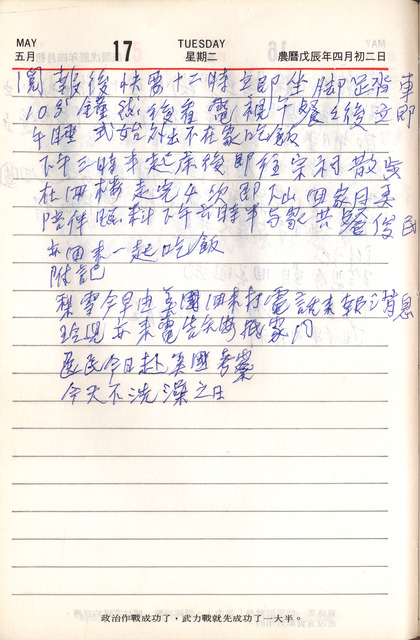 MAY 17 TUESDAY
五月 星期二 農曆戊辰年四月初二日
報後快要十二時立即坐脚踏車
10分鐘後看電視午餐後立即
午睡 式如外出不在家吃飯
下午三時半起床後即往宗祠散步
在四樓走完4次即下山回家用
陪伴 下午六時半与家共餐俊民
亦回来一起吃飯
附記
梨雪今早由美國回来打電話来報消息
玲兒亦来電告知
民今日赴美國考察
今天不洗澡之日
政治作戰成功了，武力戰就先成功了一大半。